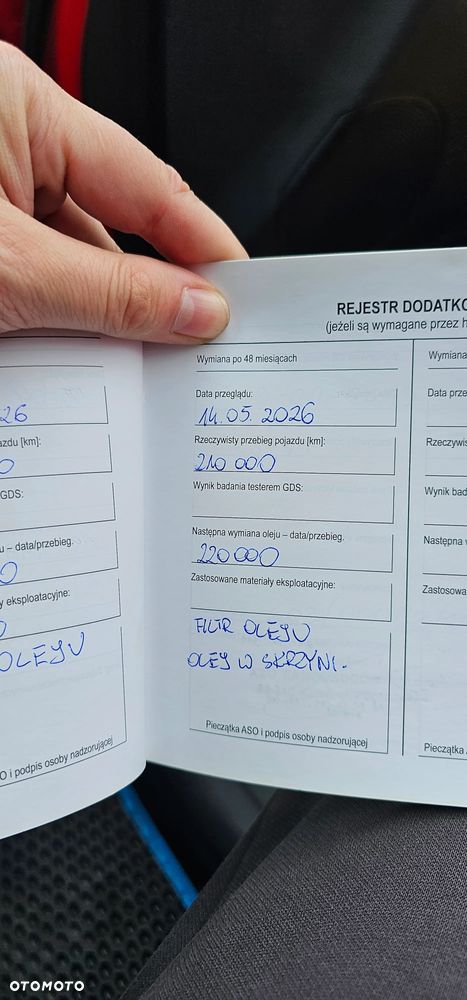 REJESTR DODATKO
(jeżeli są wymagane przez h
Wymiana po 48 miesiącach
Data przeglądu:
14.05.2026
Rzeczywisty przebieg pojazdu [km]:
210 000
Wynik badania testerem GDS:
Następna wymiana oleju – data/przebieg.
220000
Zastosowane materiały eksploatacyjne:
FILTR OLEJU
OLEJ W SKRZYNI.
Pieczątka ASO i podpis osoby nadzorującej
26
azdu [km]:
0
GDS:
u – data/przebieg.
0
y eksploatacyjne:
OLEJU
O i podpis osoby nadzorującej
Wymiana
Data prze
Rzeczywis
Wynik bad
Następna w
Zastosowan
Pieczątka A
OTOMOTO